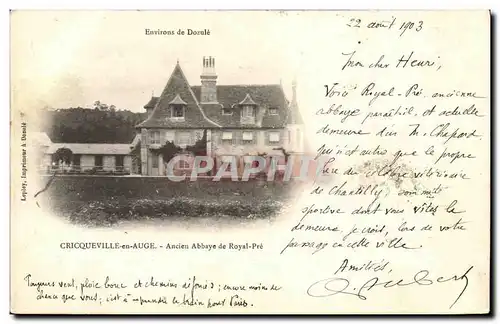 Environs de Dozulé
22 août 1903
Mon cher Henri,
Voici Royal-Pré, ancienne
abbaye paraîtil, et actuelle
demeure du M. Chapard
qui n'est autre que le propre
de Chantilly, son
sportive dont vous vîtes la
demeure, je crois, lors de votre
passage en cette ville.
Amitiés,
Aubert
Lepley, Imprimeur à Dozulé
CARTPOSTAL.COM
CRICQUEVILLE-en-AUGE. - Ancien Abbaye de Royal-Pré
Toujours vent, pluie boue et chemins défoncés; encore moins de
chance que vous; c'est à prendre le train pour Paris.